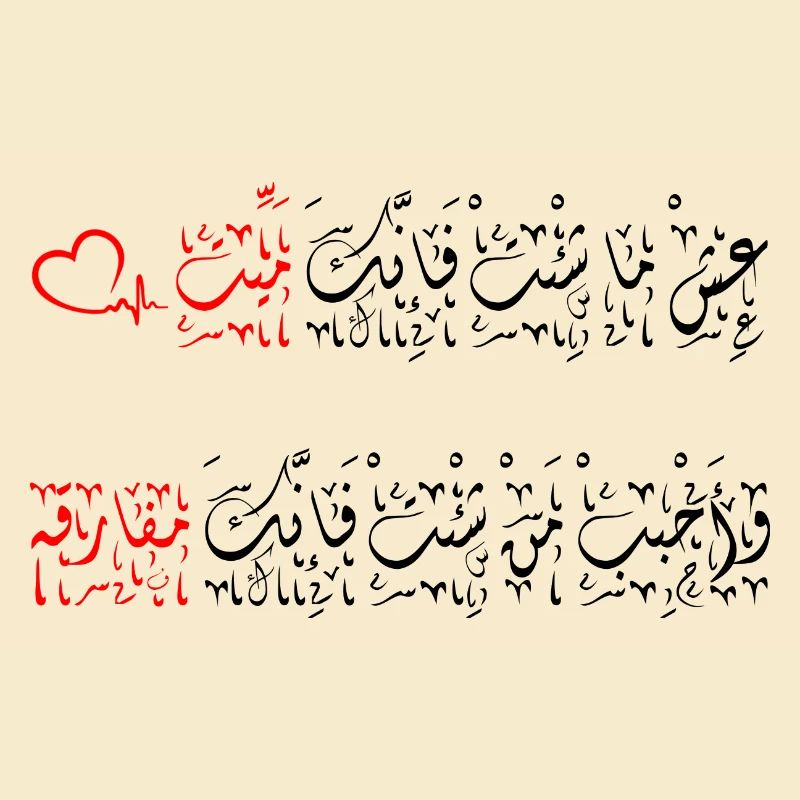 عِشْ مَا شِئْتَ فَإِنَّكَ مَيِّت
وَأَحْبِبْ مَنْ شِئْتَ فَإِنَّكَ مفارقه